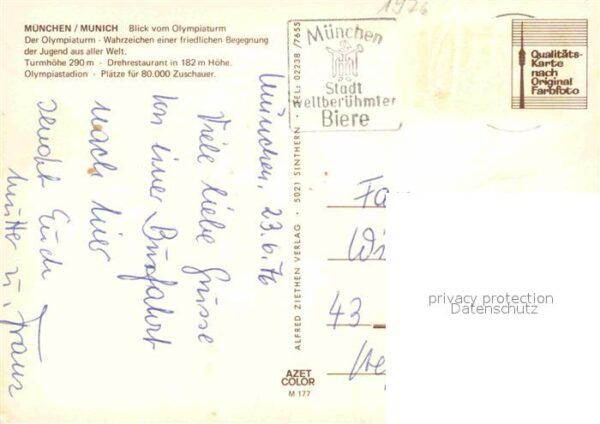 MÜNCHEN / MUNICH Blick vom Olympiaturm
Der Olympiaturm - Wahrzeichen einer friedlichen Begegnung
der Jugend aus aller Welt.
Turmhöhe 290 m · Drehrestaurant in 182 m Höhe.
Olympiastadion · Plätze für 80.000 Zuschauer.
1976
München
Stadt
weltberühmter
Biere
Qualitäts-
Karte
nach
Original
Farbfoto
München, 23.6.76
Viele liebe Grüsse
von einer Busfahrt
nach hier
sendet Euch
Mutter u. Franz
ALFRED ZIETHEN VERLAG · 5021 SINTHERN · TEL: 02238 /7655
Fa
Wi
43
AZET
COLOR
M 177
privacy protection
Datenschutz